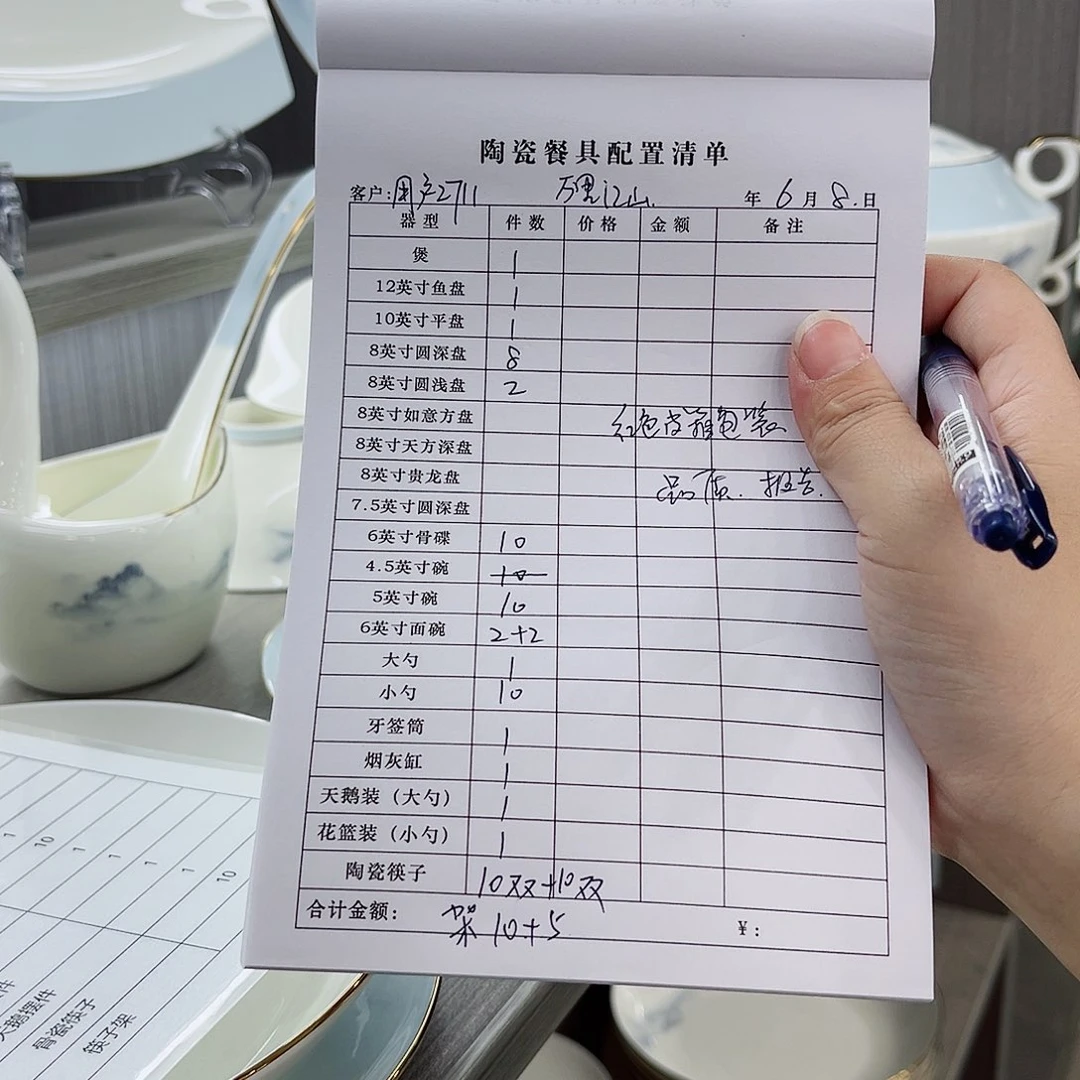 陶瓷餐具配置清单
客户:用户2711 万里江山 年 6 月 8 日
器型 件数 价格 金额 备注
煲 1
12英寸鱼盘 1
10英寸平盘 1
8英寸圆深盘 8
8英寸圆浅盘 2
8英寸如意方盘 红色皮箱包装
8英寸天方深盘
8英寸贵龙盘 品质.报告.
7.5英寸圆深盘
6英寸骨碟 10
4.5英寸碗 10
5英寸碗 10
6英寸面碗 2+2
大勺 1
小勺 10
牙签筒 1
烟灰缸 1
天鹅装（大勺） 1
花篮装（小勺） 1
陶瓷筷子 10双+10双
合计金额: 架 10+5 ¥:
1
10
1
1
1
1
10
件
天鹅摆件
骨瓷筷子
筷子架